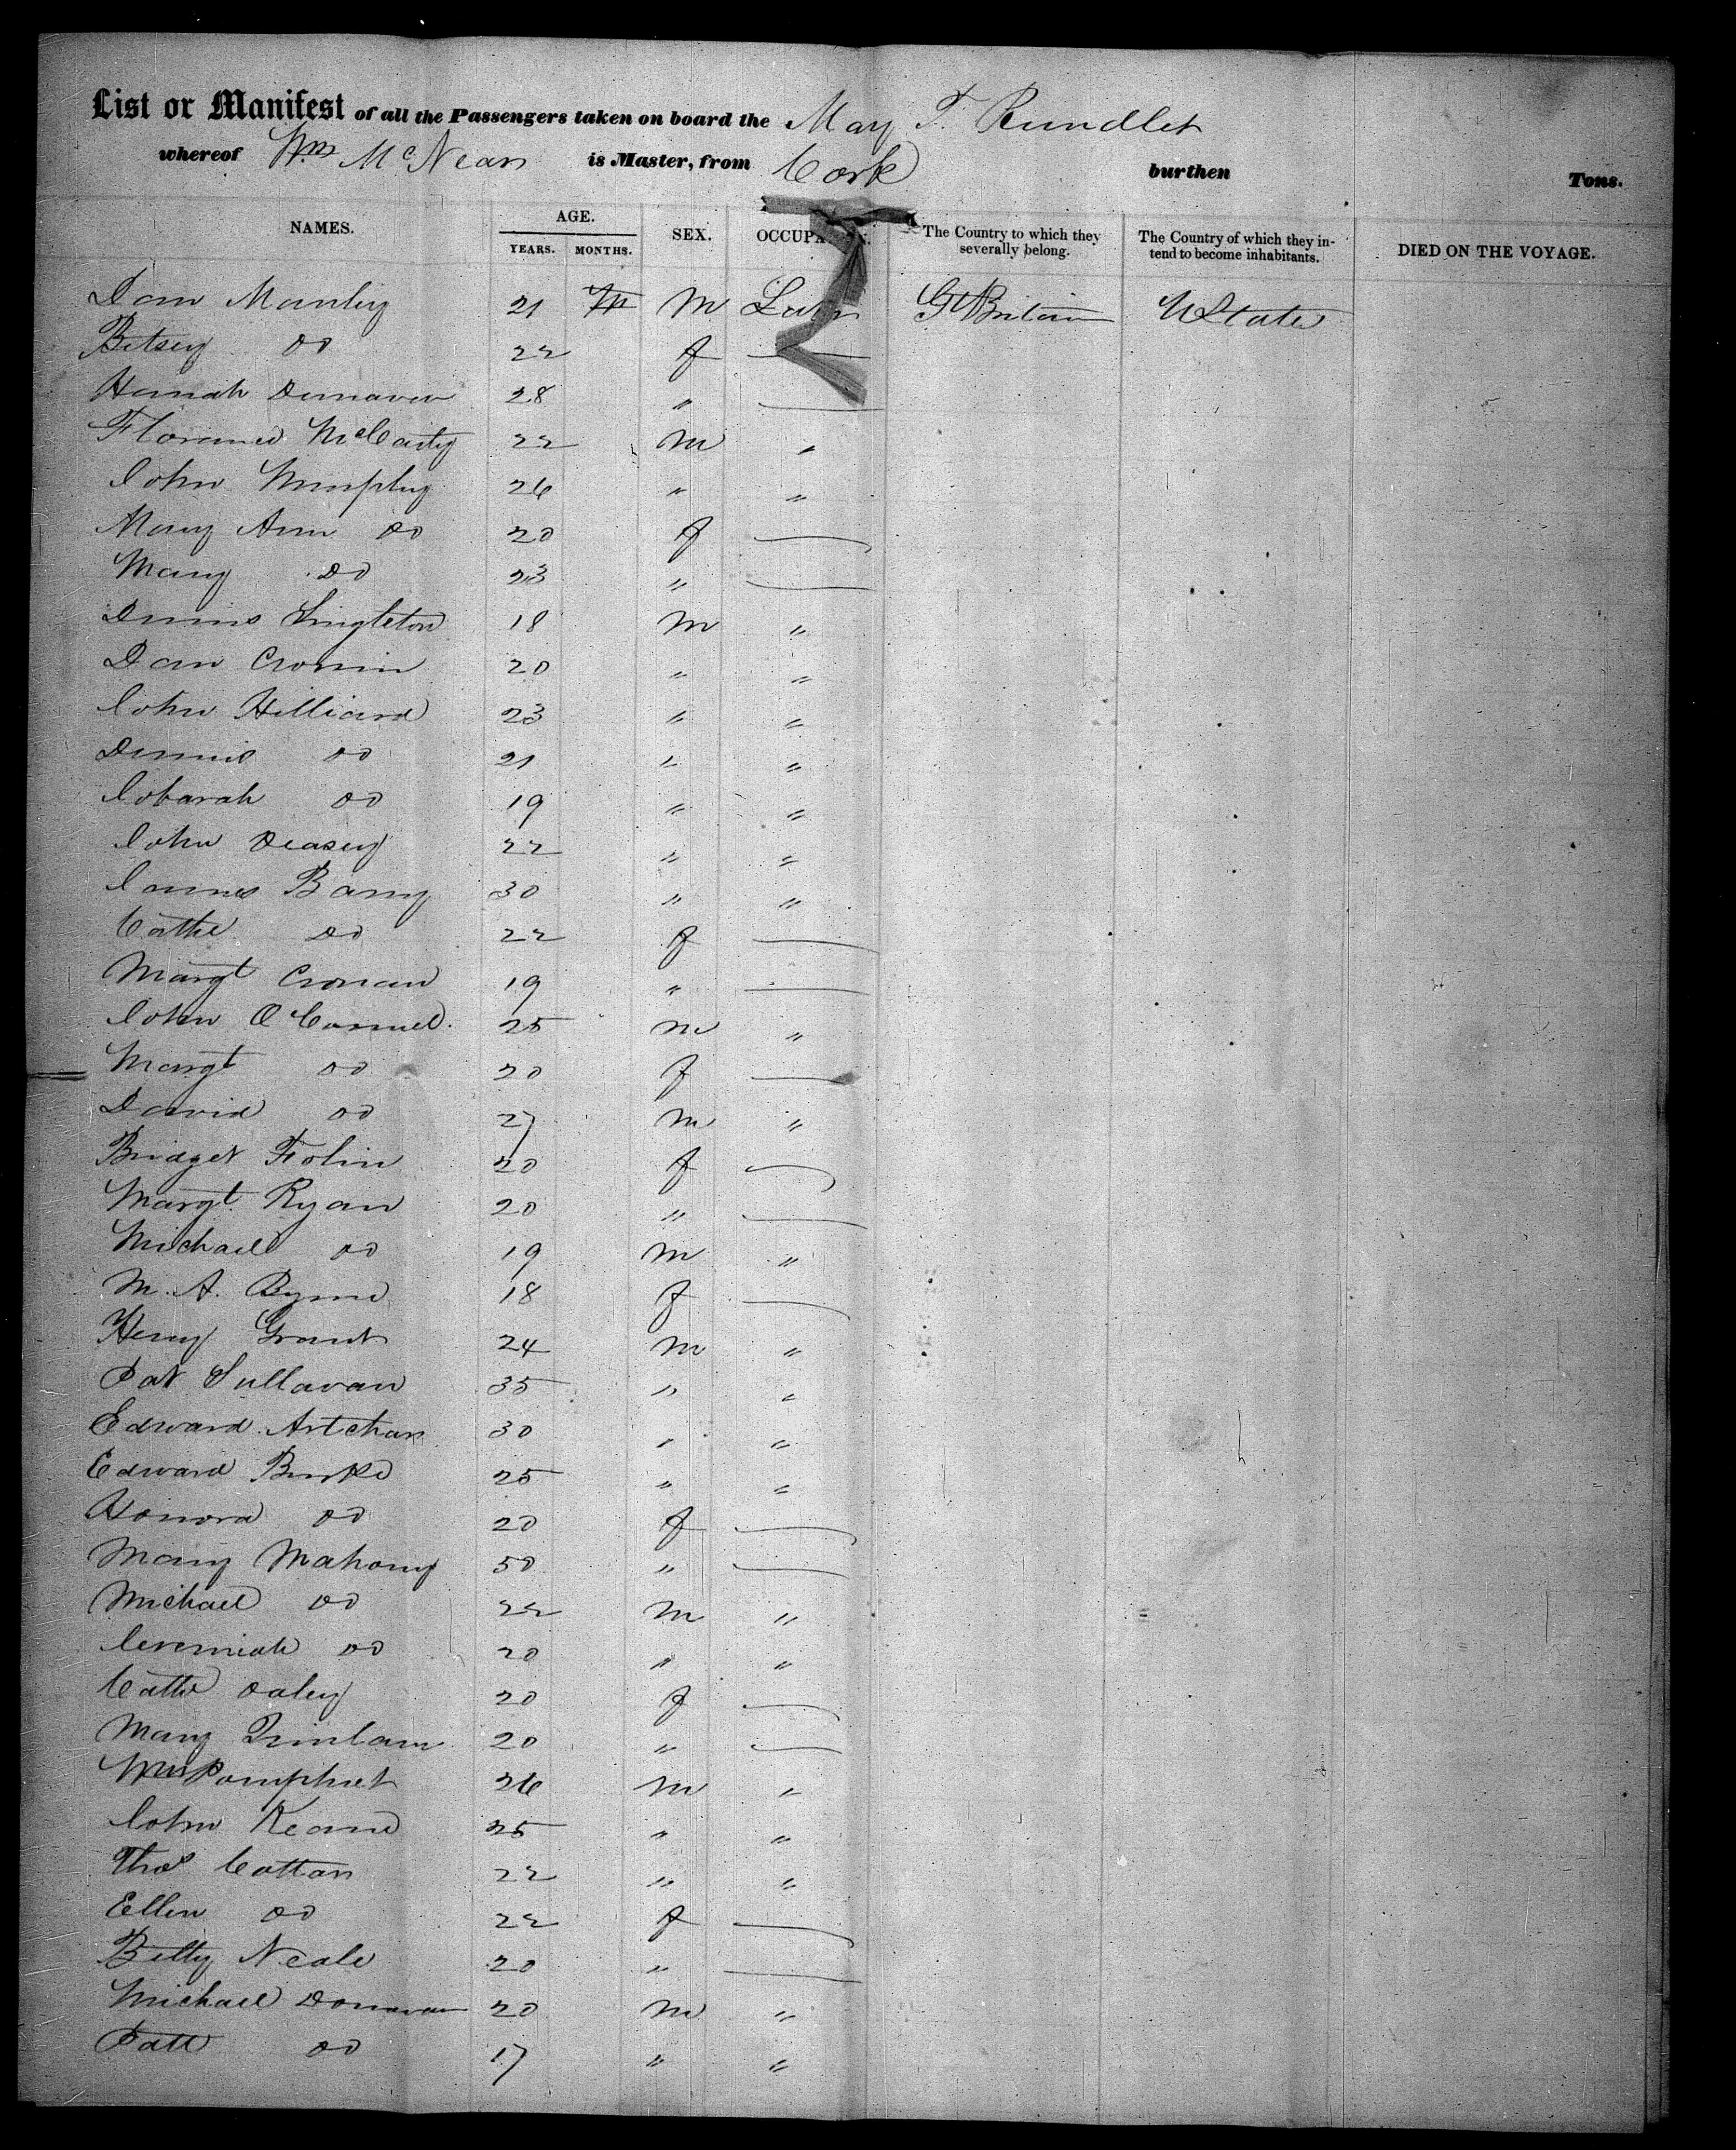 List or Manifest of all the Passengers taken on board the May T. Rundlet
whereof Wm McNear is Master, from Cork burthen Tons.
NAMES. AGE. YEARS. MONTHS. SEX. OCCUPA The Country to which they severally belong. The Country of which they intend to become inhabitants. DIED ON THE VOYAGE.
Dan Manley 21 M M Gt Britain U States
Betsey Do 22 f
Hannah Dunavan 28 "
Florance McCarty 22 M "
John Murphy 26 " "
Mary Ann Do 20 f
Mary Do 23 "
Dennis Singleton 18 M "
Dan Cronin 20 " "
John Hilliard 23 " "
Dennis Do 21 " "
Do 19 " "
John Deasey 22 " "
James Barry 30 " "
Cathe Do 22 f
Margt Cronan 19 "
John O'Connell. 25 M "
Margt Do 20 f
David Do 27 M "
Bridget Folin 20 f
Margt Ryan 20 "
Michael Do 19 M "
M. A. Byrne 18 f
Henry Grant 24 M "
Pat Sullavan 35 " "
Edward 30 " "
Edward Burke 25 " "
Honora Do 20 f
Mary Mahony 50 "
Michael Do 22 M "
Jeremiah Do 20 " "
Cathe Daley 20 f
Mary Quinlan 20 "
Wm Pomphret 26 M "
John Keane 25 " "
Thos Cottan 22 " "
Ellen Do 22 f
Betty Neale 20 "
Michael Donavan 20 M "
Patt Do 17 " "